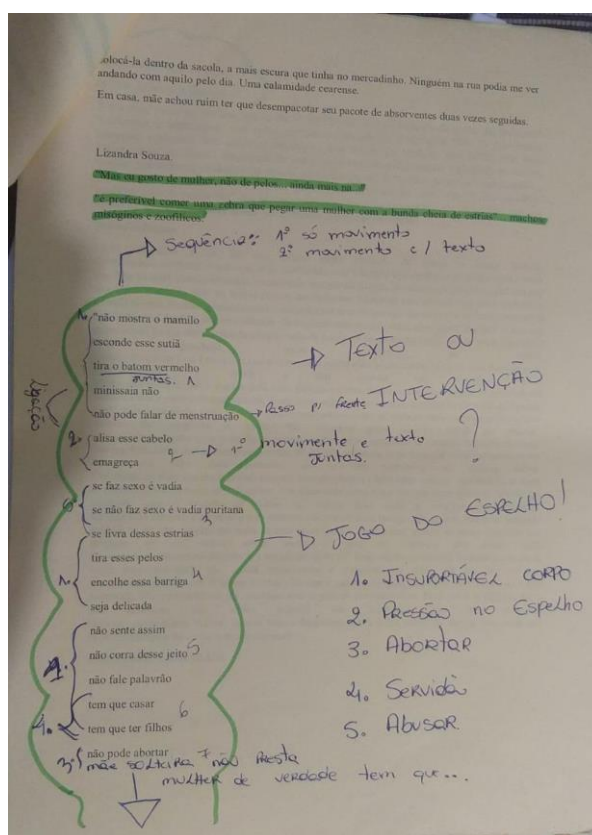 colocá-la dentro da sacola, a mais escura que tinha no mercadinho. Ninguém na rua podia me ver
andando com aquilo pelo dia. Uma calamidade cearense.
Em casa, mãe achou ruim ter que desempacotar seu pacote de absorventes duas vezes seguidas.
Lizandra Souza
"Mas eu gosto de mulher, não de pelos... ainda mais na
"é preferível comer uma zebra que pegar uma mulher com a bunda cheia de estrias"... machos
misóginos e zoofílicos.
Sequência: 1º só movimento
2º movimento c/ texto
1. "não mostra o mamilo
esconde esse sutiã
tira o batom vermelho
juntas. 1
minissaia não
não pode falar de menstruação
Ligação
Texto ou
Passo p/ frente INTERVENÇÃO
?
2. alisa esse cabelo
emagreça
2 1º movimente e texto
Juntas.
se faz sexo é vadia
se não faz sexo é vadia puritana
3
se livra dessas estrias
JOGO DO ESPELHO!
1. tira esses pelos
encolhe essa barriga 4
seja delicada
não sente assim
não corra desse jeito 5
não fale palavrão
4. tem que casar 6
tem que ter filhos
3. não pode abortar
mãe solteira 7 não presta
mulher de verdade tem que...
1. Insuportável corpo
2. Pressão no Espelho
3. Abortar
4. Servidão
5. Abusar.